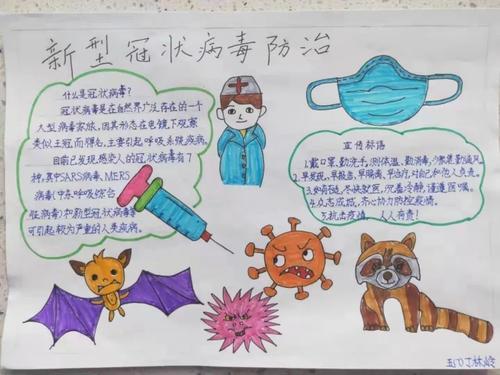 新型冠状病毒防治
什么是冠状病毒?
冠状病毒是在自然界广泛存在的一个
大型病毒家族,因其形态在电镜下观察
类似王冠而得名,主要引起呼吸系统疾病。
目前已发现感染人的冠状病毒有7
种,其中SARS病毒、MERS
病毒(中东呼吸综合
征病毒)和新型冠状病毒等
可引起较为严重的人类疾病。
宣传标语
1.戴口罩,勤洗手,测体温,勤消毒,少聚集,勤通风。
2.早发现,早报告,早隔离,早治疗,对自己和他人负责。
3.如有疑惑,尽快就医,沉着冷静,谨遵医嘱。
4.众志成城,齐心协力防控疫情。
5.抗击疫情,人人有责!
林岭